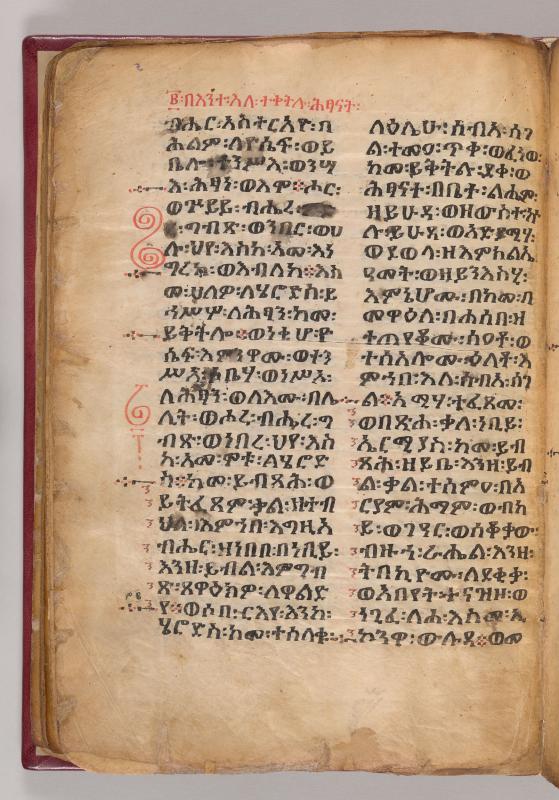 ፪፡በእንተ፡እለ፡ተቀትሉ፡ሕፃናት፡
ብሔር፡አስተርአዮ፡በ
ሕልም፡ለዮሴፍ፡ወይ
ቤሎ፡ተንሥእ፡ወንሣ
እ፡ሕፃነ፡ወእሞ፡ሖር፡
ወጕይይ፡ብሔረ
ግብጽ፡ወንበር፡ወህ
ሉ፡ህየ፡እስከ፡አመ፡እነ
ግረከ፡ወእብለከ፡እስ
መ፡ሀለዎ፡ለሄሮድስ፡ይ
ኅሥሦ፡ለሕፃን፡ከመ፡
ይቅትሎ፡ወነቂሆ፡ዮ
ሴፍ፡እምንዋሙ፡ወተን
ሥአ፡ቤሃ፡ወነሥአ፡
ለሕፃን፡ወለእሙ፡በሌ
ሊት፡ወሖረ፡ብሔረ፡ግ
ብጽ፡ወነበረ፡ህየ፡እስ
ከ፡አመ፡ሞቱ፡ለሄሮድ
ስ፡ከመ፡ይብጻሕ፡ወ
ይትፈጸም፡ቃል፡ዘተብ
ህለ፡እምኀበ፡እግዚአ
ብሔር፡ዘነበበ፡በነቢይ፡
እንዘ፡ይብል፡እምግብ
ጽ፡ጸዋዕክዎ፡ለወልድ
የ፡ወሶበ፡ርእየ፡እንከ፡
ሄሮድስ፡ከመ፡ተሳለቁ፡
ላዕሌሁ፡ሰብአ፡ሰገ
ል፡ተምዐ፡ጥቀ፡ወፈነወ፡
ከመ፡ይቅትሉ፡ደቀ፡ወ
ሕፃናት፡በቤተ፡ልሔም፡
ዘይሁዳ፡ወዘውስተ፡ኵ
ሉ፡ይሁዳ፡ወአድያሚሃ፡
ወደወላ፡ዘእምክልኤ
ዓመት፡ወዘይንእስሃ፡
እምኔሆሙ፡በከመ፡በ
መዋዕል፡በሐሰበ፡ዘ
ተጠየቆሙ፡ሰዐተ፡ወ
ተሰአሎሙ፡ዕለተ፡እ
ምኀበ፡እለ፡ሰብአ፡ሰገ
ል፡አሜሃ፡ተፈጸመ፡
ወበጽሐ፡ቃለ፡ነቢይ፡
ኤርምያስ፡ከመ፡ይብ
ጻሕ፡ዘይቤ፡እንዘ፡ይብ
ል፡ቃል፡ተሰምዐ፡በእ
ርያም፡ሕማም፡ወብካ
ይ፡ወገዓር፡ወሰቆቃው፡
ብዙኅ፡ራሔል፡እንዘ፡
ትበኪዮሙ፡ለደቂቃ፡
ወአበየት፡ተናዝዞ፡ወ
ኀጊፈ፡ላሕ፡እስመ፡ኢ
ኮንዋ፡ውሉዳ፡ወመ